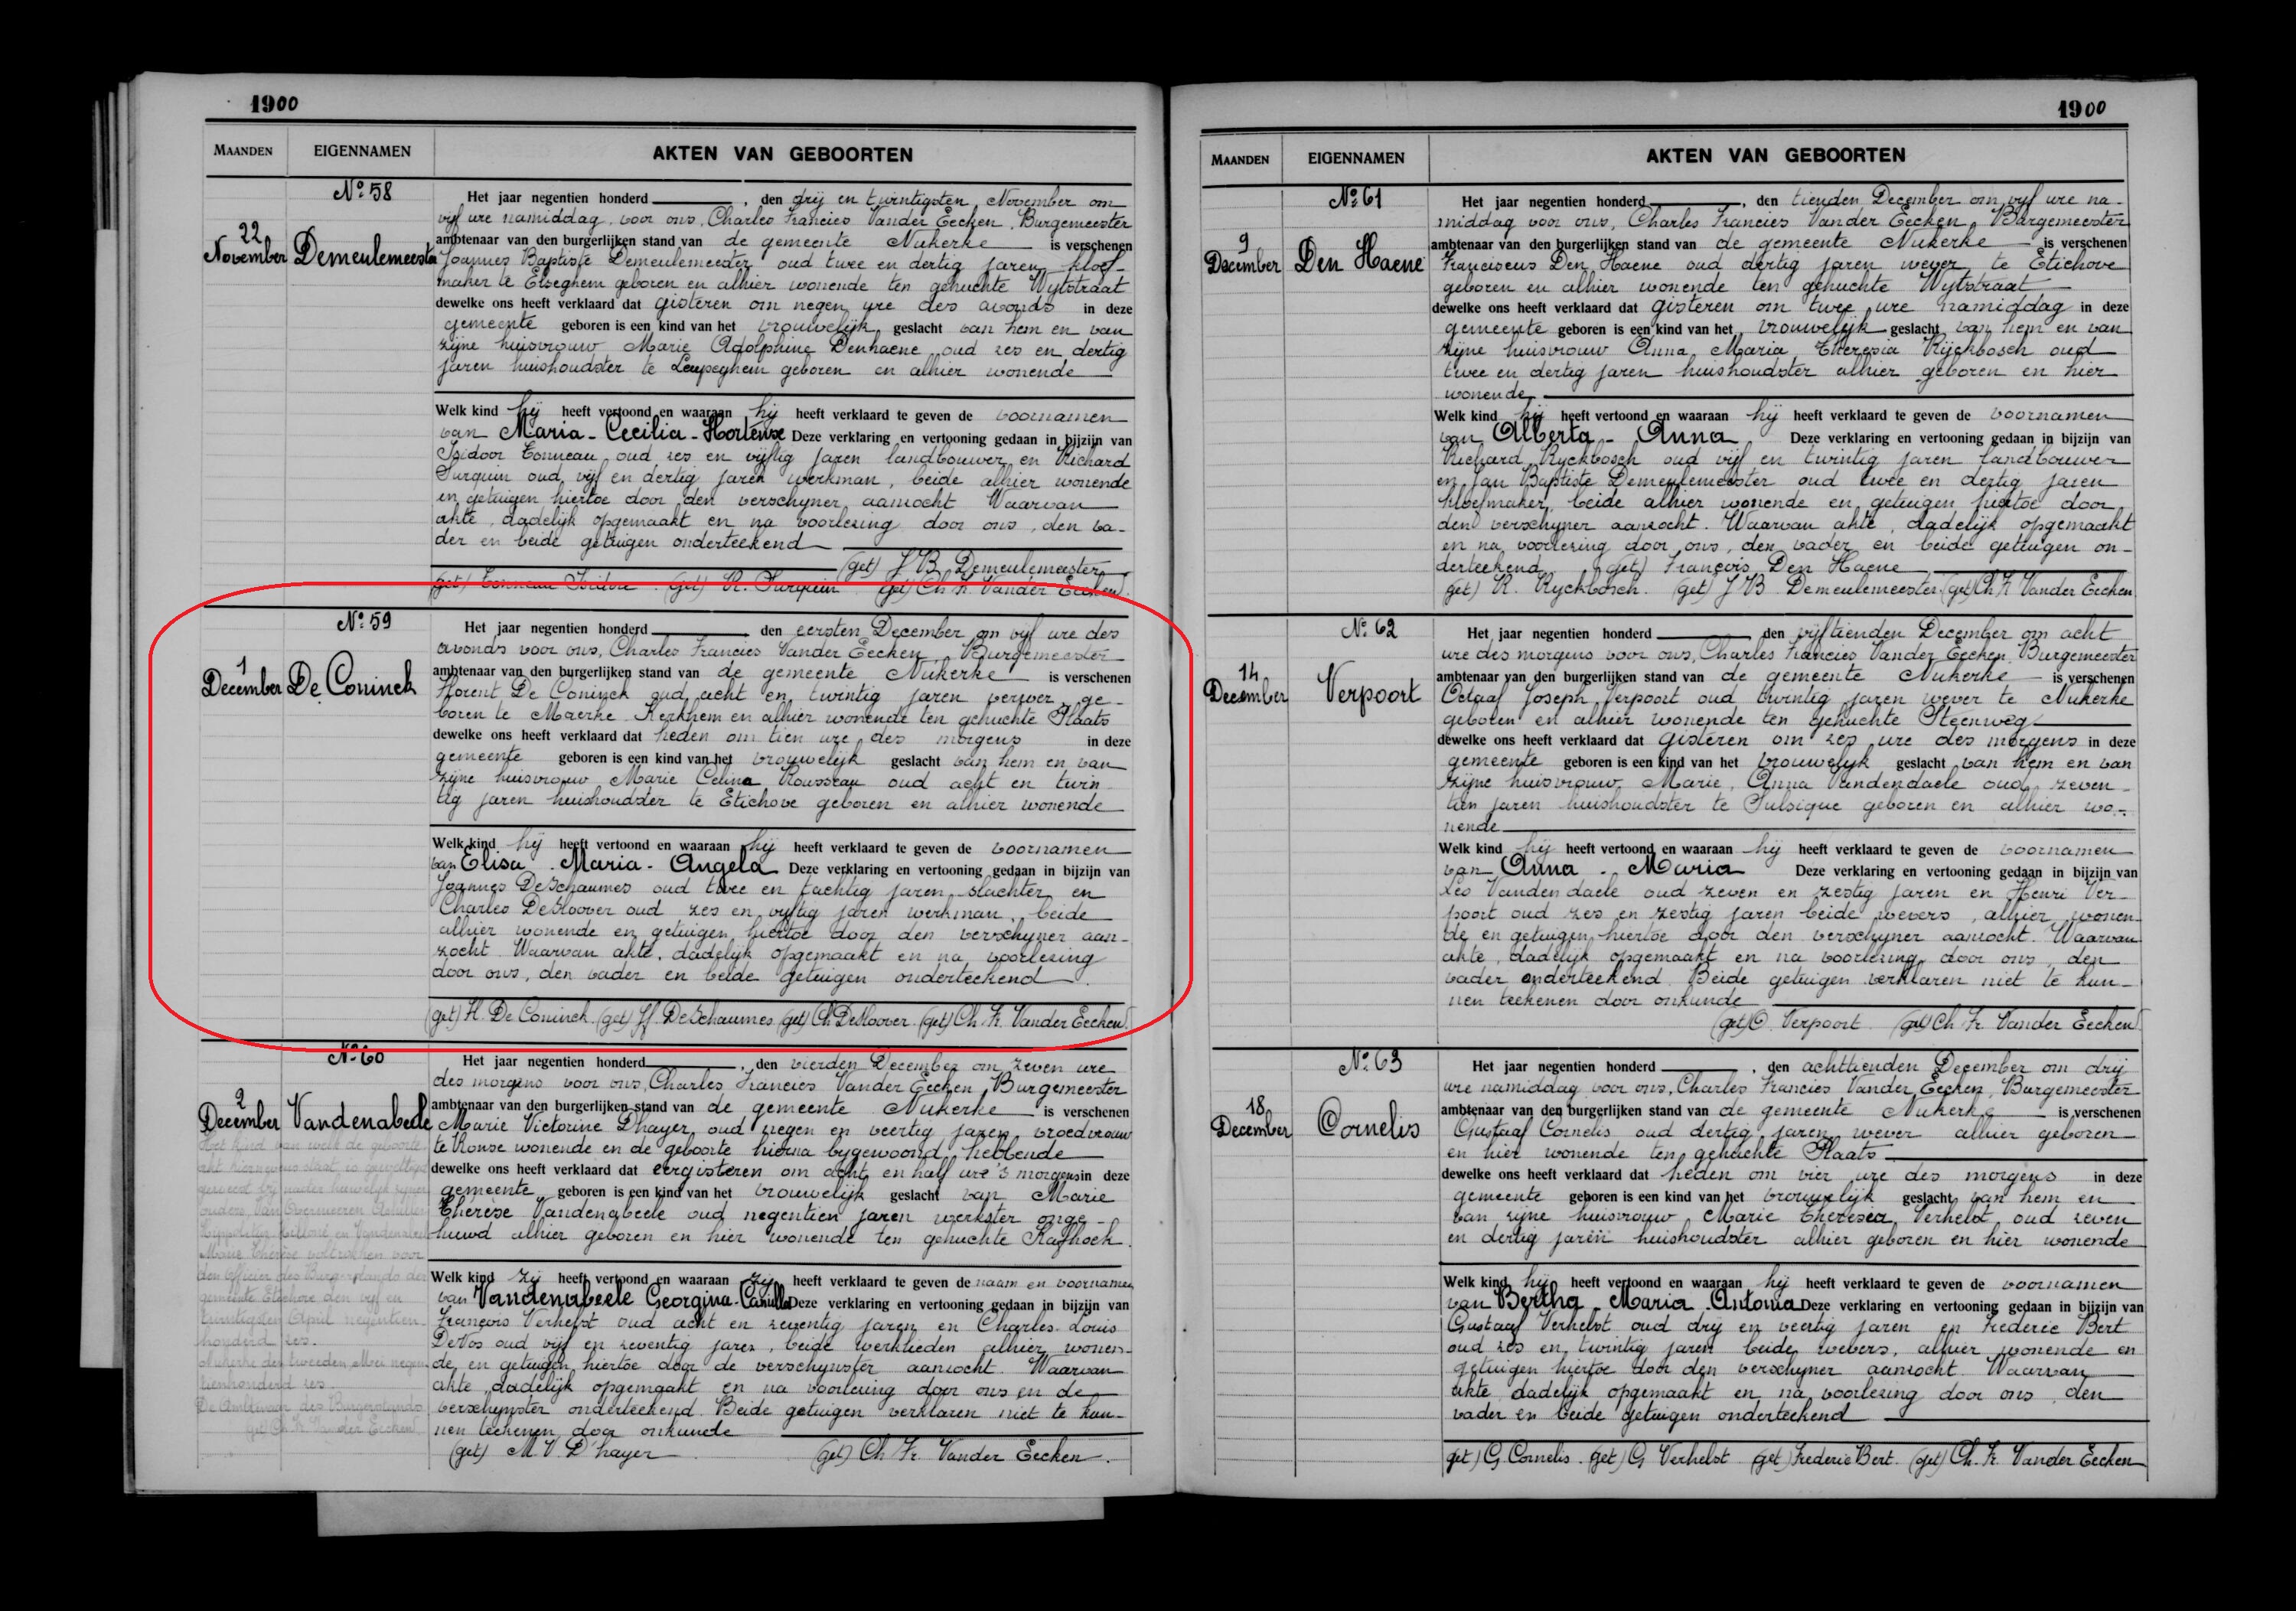 1900
MAANDEN
EIGENNAMEN
AKTEN VAN GEBOORTEN
No. 58
22
November
Demeulemeester
Het jaar negentien honderd , den drij en twintigsten November om
vijf ure namiddag, voor ons, Charles Francies Vander Eecken, Burgemeester
ambtenaar van den burgerlijken stand van de gemeente Nukerke is verschenen
Joannes Baptiste Demeulemeester oud twee en dertig jaren kloef-
maker te Elseghem geboren en alhier wonende ten gehuchte Wytstraat
dewelke ons heeft verklaard dat gisteren om negen ure des avonds in deze
gemeente geboren is een kind van het vrouwelijk geslacht van hem en van
zijne huisvrouw Marie Adolphine Denhaene oud zes en dertig
jaren huishoudster te Leupeghem geboren en alhier wonende
Welk kind hij heeft vertoond en waaraan hij heeft verklaard te geven de voornamen
van Maria - Cecilia - Hortense Deze verklaring en vertooning gedaan in bijzijn van
Isidoor Tonneau oud zes en vijftig jaren landbouwer en Richard
Surquin oud vijf en dertig jaren werkman, beide alhier wonende
en getuigen hiertoe door den verschyner aanzocht Waarvan
akte, dadelijk opgemaakt en na voorlezing door ons, den va-
der en beide getuigen onderteekend
(get) J B Demeulemeester
(get) Tonneau Isidore. (get) R. Surquin (get) Ch F. Vander Eecken.
No. 59
1
December
De Coninck
Het jaar negentien honderd den eersten December om vijf ure des
avonds voor ons, Charles Francies Vander Eecken, Burgemeester
ambtenaar van den burgerlijken stand van de gemeente Nukerke is verschenen
Florent De Coninck oud acht en twintig jaren verwer ge-
boren te Maerke Kerkhem en alhier wonende ten gehuchte Plaats
dewelke ons heeft verklaard dat heden om tien ure des morgens in deze
gemeente geboren is een kind van het vrouwelijk geslacht van hem en van
zijne huisvrouw Marie Celina Rousseau oud acht en twin
tig jaren huishoudster te Etichove geboren en alhier wonende
Welk kind hij heeft vertoond en waaraan hij heeft verklaard te geven de voornamen
van Elisa - Maria - Angela Deze verklaring en vertooning gedaan in bijzijn van
Joannes DeSchaumes oud twee en tachtig jaren slachter en
Charles DeSloover oud zes en vijftig jaren werkman, beide
alhier wonende en getuigen hiertoe door den verschyner aan-
zocht Waarvan akte, dadelijk opgemaakt en na voorlezing
door ons, den vader en beide getuigen onderteekend.
get) H. De Coninck. (get) Jf. DeSchaumes (get) Ch DeSloover. (get) Ch. F. Vander Eecken.
No 60
2
December
Vandenabeele
Het jaar negentien honderd , den vierden December om zeven ure
des morgens voor ons, Charles Francies Vander Eecken, Burgemeester
ambtenaar van den burgerlijken stand van de gemeente Nukerke is verschenen
Marie Victorine Dhayer oud negen en veertig jaren vroedvrouw
te Ronse wonende en de geboorte hierna bygewoond hebbende
dewelke ons heeft verklaard dat eergisteren om acht en half ure 's morgens in deze
gemeente geboren is een kind van het vrouwelijk geslacht van Marie
Thérèse Vandenabeele oud negentien jaren werkster onge-
huwd alhier geboren en hier wonende ten gehuchte Kaphoek.
Welk kind zij heeft vertoond en waaraan zij heeft verklaard te geven de naam en voornamen
van Vandenabeele Georgina-Camilla Deze verklaring en vertooning gedaan in bijzijn van
François Verhelst oud acht en zeventig jaren en Charles Louis
DeVos oud vijf en zeventig jaren, beide werklieden alhier wonen-
de, en getuigen hiertoe door de verschynster aanzocht. Waarvan
akte dadelijk opgemaakt en na voorlezing door ons en de
verschynster onderteekend. Beide getuigen verklaren niet te kun-
nen teekenen door onkunde
(get) M. V. D'hayer (get) Ch Fr. Vander Eecken.
Het kind van welk de geboorte
akt hiernevens staat, is gewettigd
geweest bij nader huwelijk zijner
ouders, Van Overmeeren
en Vandenabeele
Marie Thérèse voltrokken voor
den Officier des Burgerstands der
gemeente Etichove den vijf en
twintigsten April negentien
honderd zes.
Nukerke den tweeden Mei negen
tienhonderd zes
De Ambtenaar des Burgerstands
get) Ch F. Vander Eecken
1900
MAANDEN
EIGENNAMEN
AKTEN VAN GEBOORTEN
No. 61
9
December
Den Haene
Het jaar negentien honderd , den tienden December om vijf ure na-
middag voor ons, Charles Francies Vander Eecken Burgemeester
ambtenaar van den burgerlijken stand van de gemeente Nukerke is verschenen
Franciscus Den Haene oud dertig jaren wever te Etichove
geboren en alhier wonende ten gehuchte Wytstraat
dewelke ons heeft verklaard dat gisteren om twee ure namiddag in deze
gemeente geboren is een kind van het vrouwelijk geslacht van hem en van
zijne huisvrouw Anna Maria Theresia Rijckbosch oud
twee en dertig jaren huishoudster alhier geboren en hier
wonende
Welk kind hij heeft vertoond en waaraan hij heeft verklaard te geven de voornamen
van Alberta - Anna Deze verklaring en vertooning gedaan in bijzijn van
Richard Ryckbosch oud vijf en twintig jaren landbouwer
en Jan Baptiste Demeulemeester oud twee en dertig jaren
kloefmaker, beide alhier wonende en getuigen hiertoe door
den verschyner aanzocht. Waarvan akte, dadelijk opgemaakt
en na voorlezing door ons, den vader en beide getuigen on-
derteekend. (get) François Den Haene
(get) R. Ryckbosch. (get) J B Demeulemeester. (get) Ch F. Vander Eecken
No. 62
14
December
Verpoort
Het jaar negentien honderd den vijftienden December om acht
ure des morgens voor ons, Charles Francies Vander Eecken, Burgemeester
ambtenaar van den burgerlijken stand van de gemeente Nukerke is verschenen
Octaaf Joseph Verpoort oud twintig jaren wever te Nukerke
geboren en alhier wonende ten gehuchte Steenweg
dewelke ons heeft verklaard dat gisteren om zes ure des morgens in deze
gemeente geboren is een kind van het vrouwelyk geslacht van hem en van
zijne huisvrouw Marie Anna Vandendaele oud zeven-
tien jaren huishoudster te Sulsique geboren en alhier wo-
nende
Welk kind hij heeft vertoond en waaraan hij heeft verklaard te geven de voornamen
van Anna - Maria Deze verklaring en vertooning gedaan in bijzijn van
Leo Vandendaele oud zeven en zestig jaren en Henri Ver-
poort oud zes en zestig jaren beide wevers, alhier wonen-
de en getuigen hiertoe door den verschyner aanzocht. Waarvan
akte, dadelijk opgemaakt en na voorlezing door ons, den
vader onderteekend. Beide getuigen verklaren niet te kun-
nen teekenen door onkunde
(get) O. Verpoort (get) Ch Fr. Vander Eecken.
No. 63
18
December
Cornelis
Het jaar negentien honderd , den achttienden December om drij
ure namiddag voor ons, Charles Francies Vander Eecken, Burgemeester
ambtenaar van den burgerlijken stand van de gemeente Nukerke is verschenen
Gustaaf Cornelis oud dertig jaren wever alhier geboren
en hier wonende ten gehuchte Plaats
dewelke ons heeft verklaard dat heden om vier ure des morgens in deze
gemeente geboren is een kind van het vrouwelijk geslacht van hem en
van zijne huisvrouw Marie Theresia Verhelst oud zeven
en dertig jaren huishoudster alhier geboren en hier wonende
Welk kind hij heeft vertoond en waaraan hij heeft verklaard te geven de voornamen
van Bertha - Maria - Antonia Deze verklaring en vertooning gedaan in bijzijn van
Gustaaf Verhelst oud drij en veertig jaren en Frederic Bert
oud zes en twintig jaren beide wevers, alhier wonende en
getuigen hiertoe door den verschyner aanzocht Waarvan
akte dadelijk opgemaakt en na voorlezing door ons den
vader en beide getuigen onderteekend
get) G Cornelis. (get) G Verhelst (get) Frederic Bert. (get) Ch. F. Vander Eecken